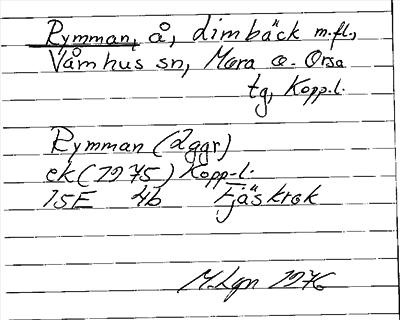 Rymman, å, dimbäck m.fl.,
Våmhus sn, Mora o. Orsa
tg, Kopp.l.
Rymman (2ggr)
ek (1975) Kopp-l.
15E 4b Fjäskrok
M.Lgn 1976